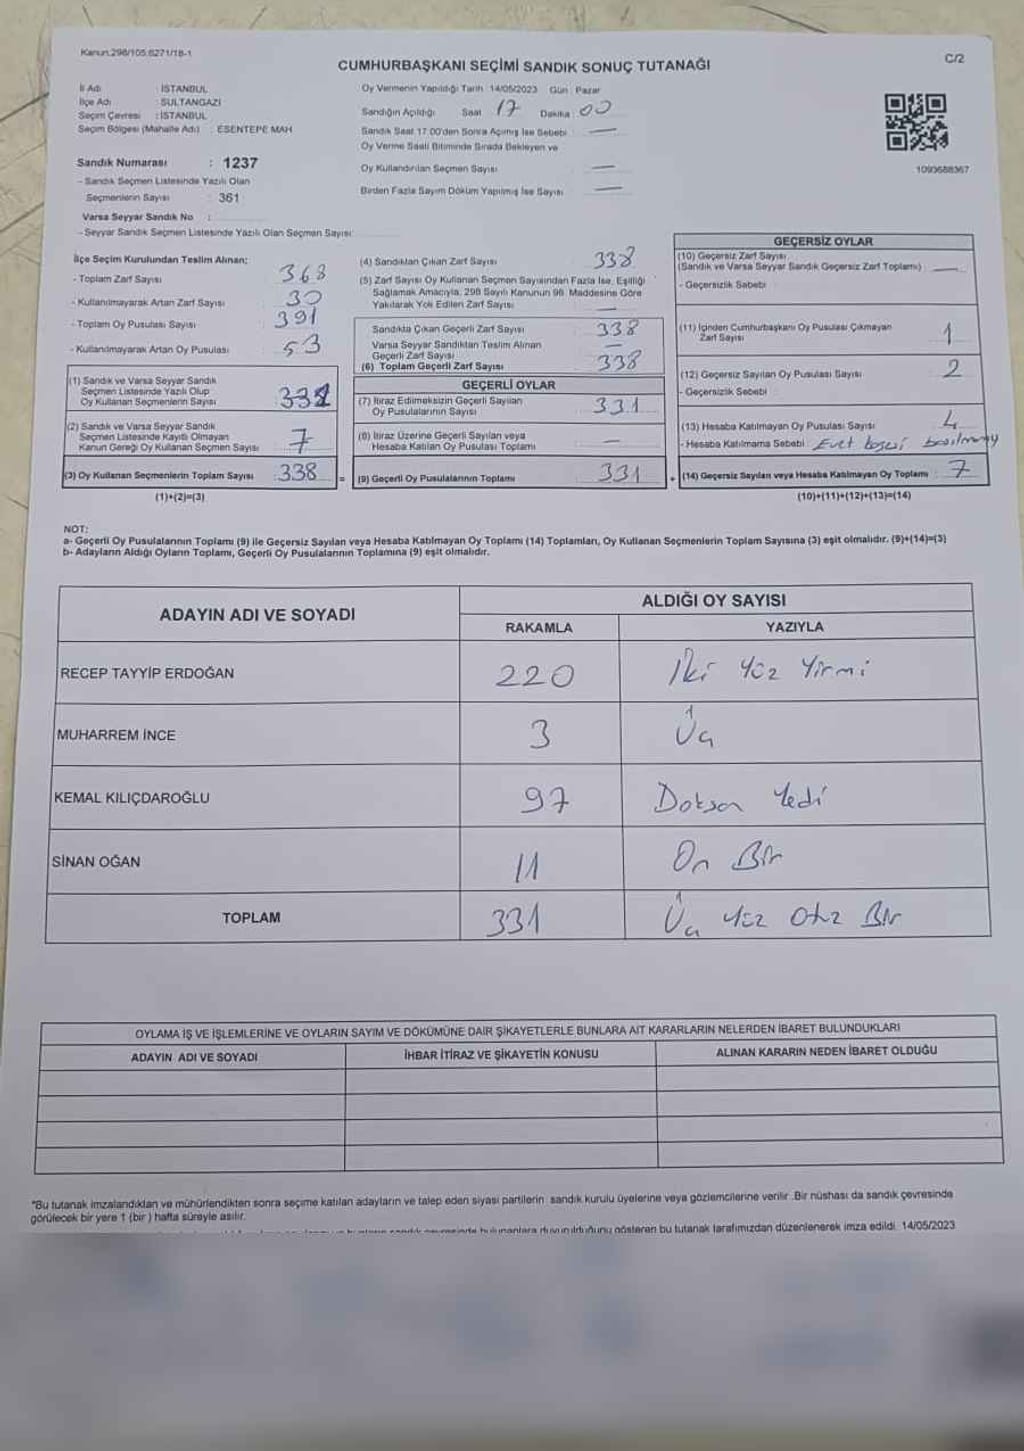 Kanun:298/105.6271/18-1
C/2
CUMHURBAŞKANI SEÇİMİ SANDIK SONUÇ TUTANAĞI
İl Adı : İSTANBUL
İlçe Adı : SULTANGAZİ
Seçim Çevresi : İSTANBUL
Seçim Bölgesi (Mahalle Adı) : ESENTEPE MAH
Sandık Numarası : 1237
- Sandık Seçmen Listesinde Yazılı Olan
Seçmenlerin Sayısı : 361
Varsa Seyyar Sandık No :
- Seyyar Sandık Seçmen Listesinde Yazılı Olan Seçmen Sayısı:
Oy Vermenin Yapıldığı Tarih 14/05/2023 Gün : Pazar
Sandığın Açıldığı Saat 17 Dakika : 00
Sandık Saat 17.00'den Sonra Açılmış İse Sebebi : —
Oy Verme Saati Bitiminde Sırada Bekleyen ve
Oy Kullandırılan Seçmen Sayısı : —
Birden Fazla Sayım Döküm Yapılmış İse Sayısı : —
1093688367
İlçe Seçim Kurulundan Teslim Alınan;
- Toplam Zarf Sayısı : 368
- Kullanılmayarak Artan Zarf Sayısı : 30
- Toplam Oy Pusulası Sayısı : 391
- Kullanılmayarak Artan Oy Pusulası : 53
(1) Sandık ve Varsa Seyyar Sandık
Seçmen Listesinde Yazılı Olup
Oy Kullanan Seçmenlerin Sayısı : 331
(2) Sandık ve Varsa Seyyar Sandık
Seçmen Listesinde Kayıtlı Olmayan
Kanun Gereği Oy Kullanan Seçmen Sayısı : 7
(3) Oy Kullanan Seçmenlerin Toplam Sayısı : 338
(1)+(2)=(3)
(4) Sandıktan Çıkan Zarf Sayısı : 338
(5) Zarf Sayısı Oy Kullanan Seçmen Sayısından Fazla İse, Eşitliği
Sağlamak Amacıyla, 298 Sayılı Kanunun 98. Maddesine Göre
Yakılarak Yok Edilen Zarf Sayısı : —
Sandıkta Çıkan Geçerli Zarf Sayısı : 338
Varsa Seyyar Sandıktan Teslim Alınan
Geçerli Zarf Sayısı : —
(6) Toplam Geçerli Zarf Sayısı : 338
GEÇERLİ OYLAR
(7) İtiraz Edilmeksizin Geçerli Sayılan
Oy Pusulalarının Sayısı : 331
(8) İtiraz Üzerine Geçerli Sayılan veya
Hesaba Katılan Oy Pusulası Toplamı : —
= (9) Geçerli Oy Pusulalarının Toplamı : 331
GEÇERSİZ OYLAR
(10) Geçersiz Zarf Sayısı
(Sandık ve Varsa Seyyar Sandık Geçersiz Zarf Toplamı) : —
- Geçersizlik Sebebi :
(11) İçinden Cumhurbaşkanı Oy Pusulası Çıkmayan
Zarf Sayısı : 1
(12) Geçersiz Sayılan Oy Pusulası Sayısı : 2
- Geçersizlik Sebebi :
(13) Hesaba Katılmayan Oy Pusulası Sayısı : 4
- Hesaba Katılmama Sebebi :
+ (14) Geçersiz Sayılan veya Hesaba Katılmayan Oy Toplamı : 7
(10)+(11)+(12)+(13)=(14)
NOT:
a- Geçerli Oy Pusulalarının Toplamı (9) ile Geçersiz Sayılan veya Hesaba Katılmayan Oy Toplamı (14) Toplamları, Oy Kullanan Seçmenlerin Toplam Sayısına (3) eşit olmalıdır. (9)+(14)=(3)
b- Adayların Aldığı Oyların Toplamı, Geçerli Oy Pusulalarının Toplamına (9) eşit olmalıdır.
ADAYIN ADI VE SOYADI
ALDIĞI OY SAYISI
RAKAMLA YAZIYLA
RECEP TAYYİP ERDOĞAN 220 İki Yüz Yirmi
MUHARREM İNCE 3 Üç
KEMAL KILIÇDAROĞLU 97 Doksan Yedi
SİNAN OĞAN 11 On Bir
TOPLAM 331 Üç Yüz Otuz Bir
OYLAMA İŞ VE İŞLEMLERİNE VE OYLARIN SAYIM VE DÖKÜMÜNE DAİR ŞİKAYETLERLE BUNLARA AİT KARARLARIN NELERDEN İBARET BULUNDUKLARI
ADAYIN ADI VE SOYADI İHBAR İTİRAZ VE ŞİKAYETİN KONUSU ALINAN KARARIN NEDEN İBARET OLDUĞU
*Bu tutanak imzalandıktan ve mühürlendikten sonra seçime katılan adayların ve talep eden siyasi partilerin sandık kurulu üyelerine veya gözlemcilerine verilir. Bir nüshası da sandık çevresinde
görülecek bir yere 1 (bir) hafta süreyle asılır.
bulunanlara duyurulduğunu gösteren bu tutanak tarafımızdan düzenlenerek imza edildi. 14/05/2023